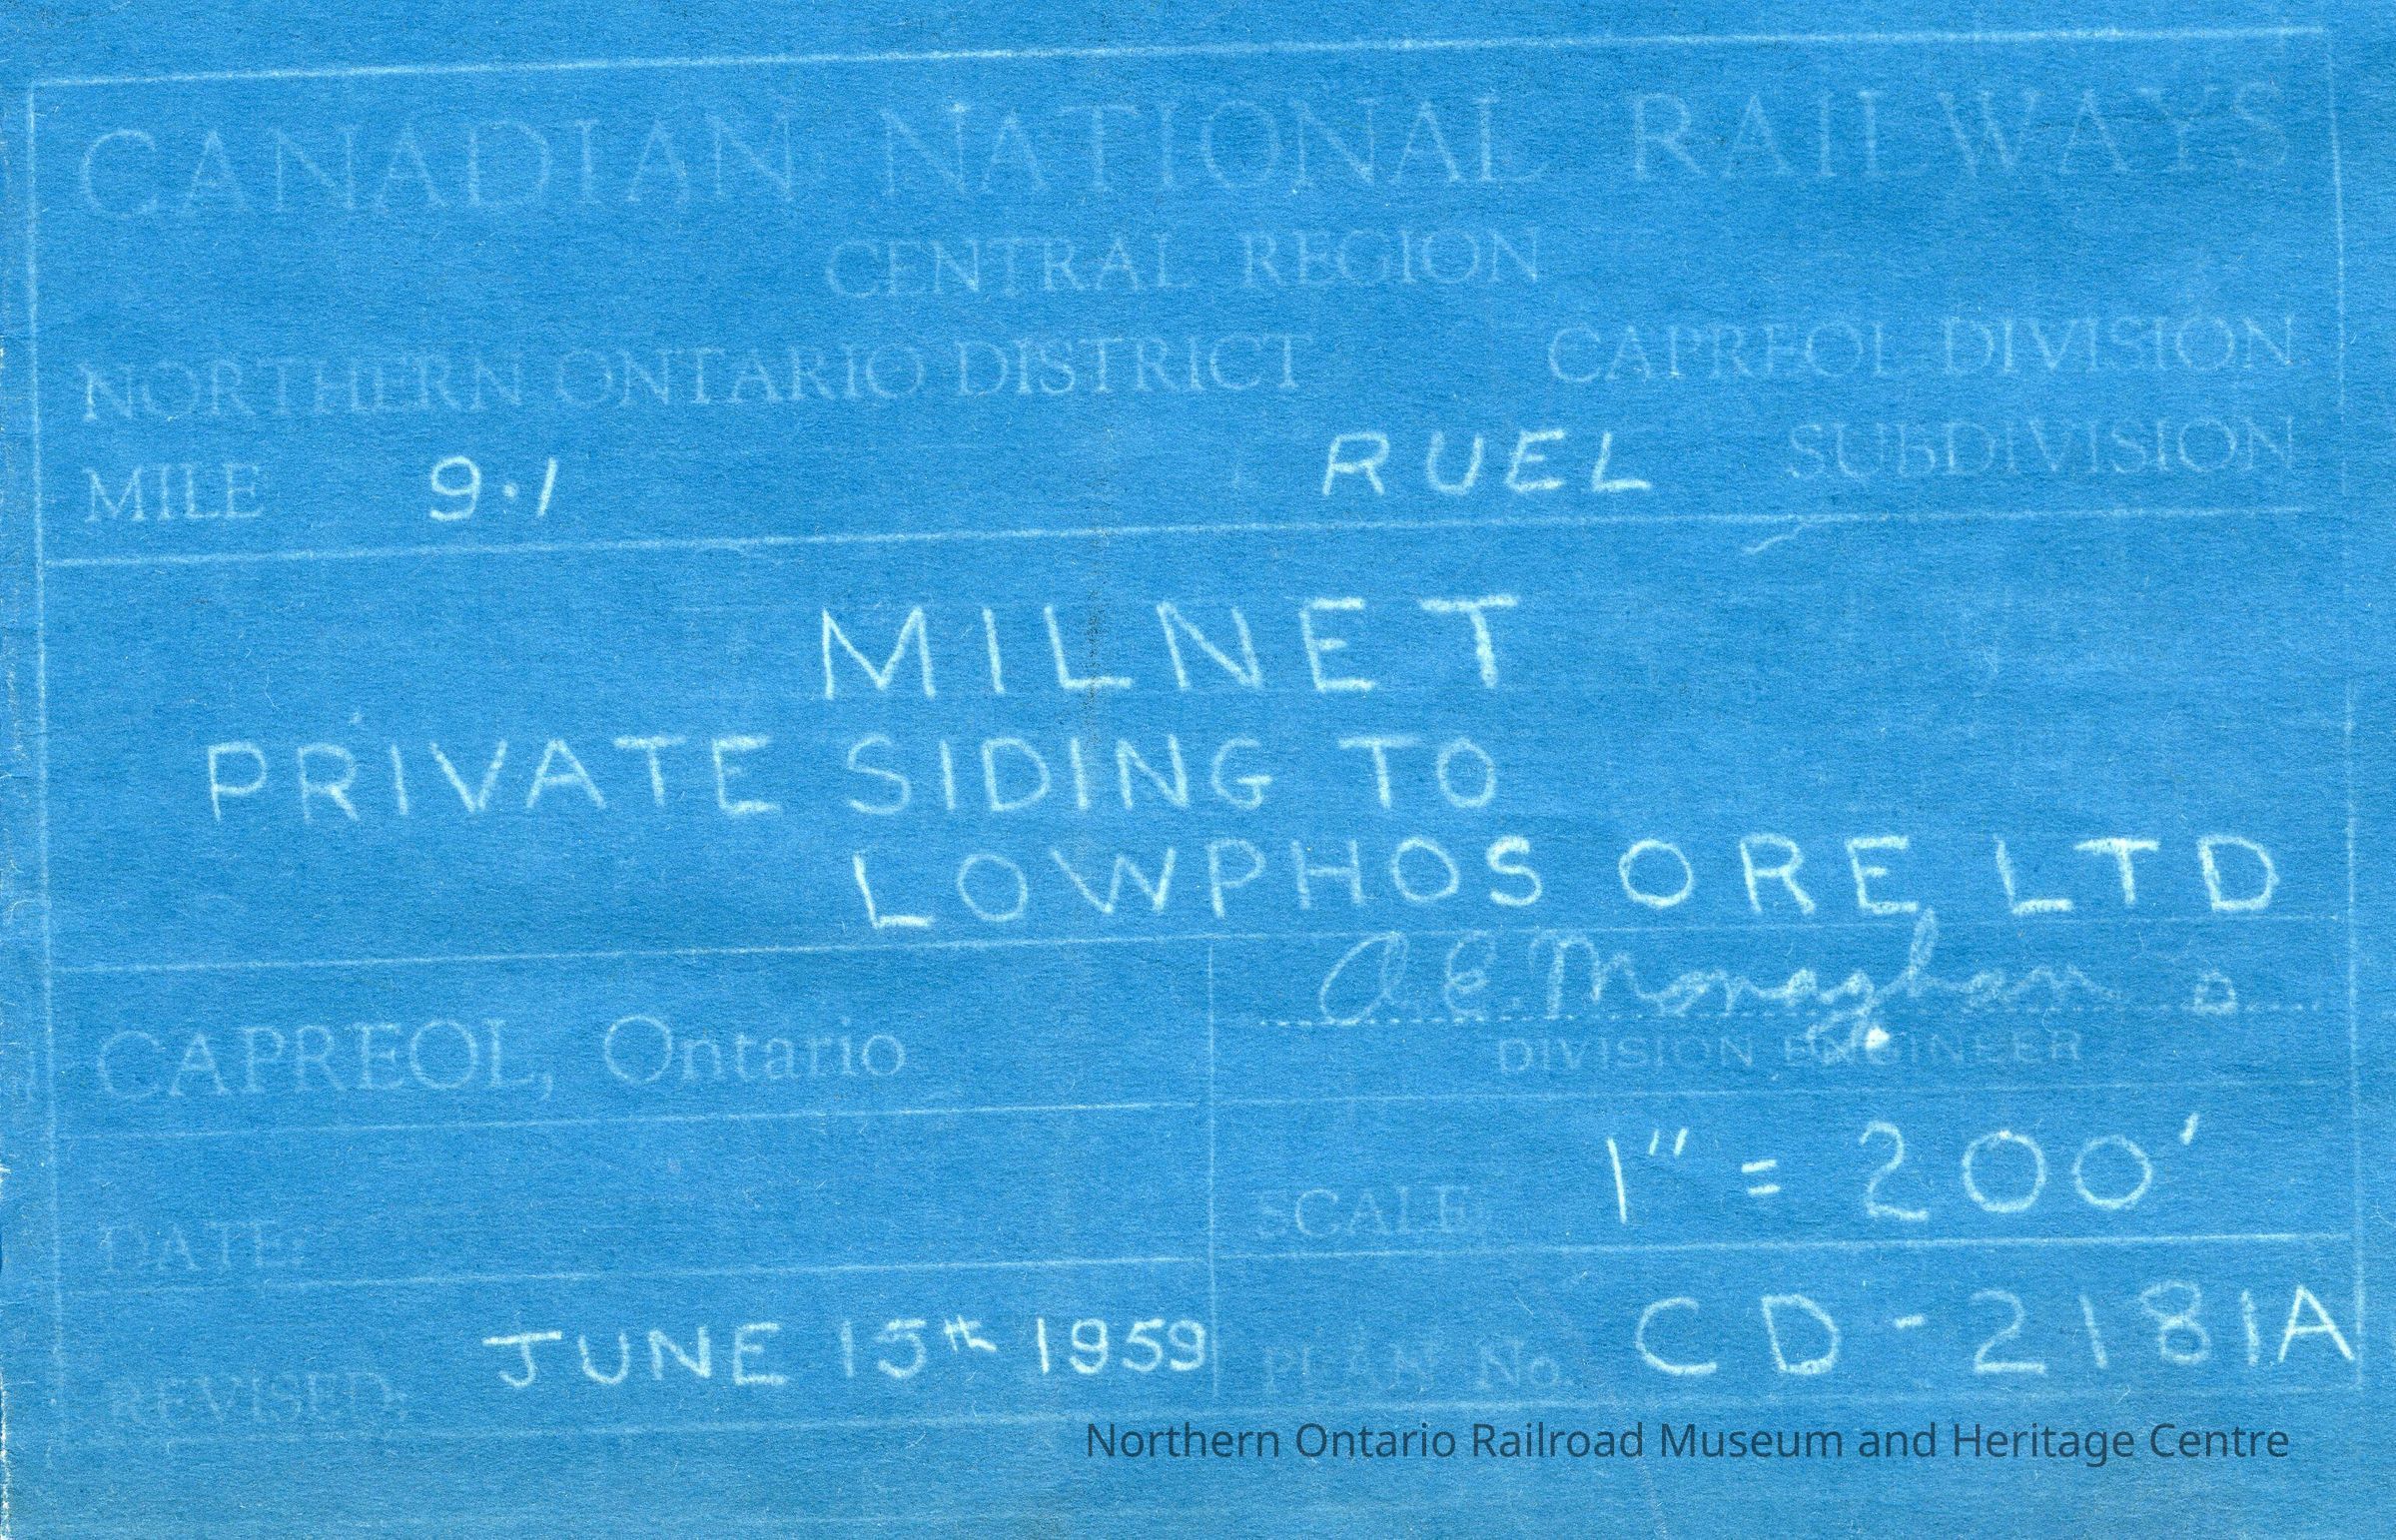 CANADIAN NATIONAL RAILWAYS
CENTRAL REGION
NORTHERN ONTARIO DISTRICT CAPREOL DIVISION
MILE 9.1 RUEL SUBDIVISION
MILNET
PRIVATE SIDING TO
LOWPHOS ORE LTD
A. E. Monaghan
CAPREOL, Ontario
DIVISION ENGINEER
SCALE: 1" = 200'
DATE:
JUNE 15th 1959
PLAN No. CD-2181A
REVISED:
Northern Ontario Railroad Museum and Heritage Centre